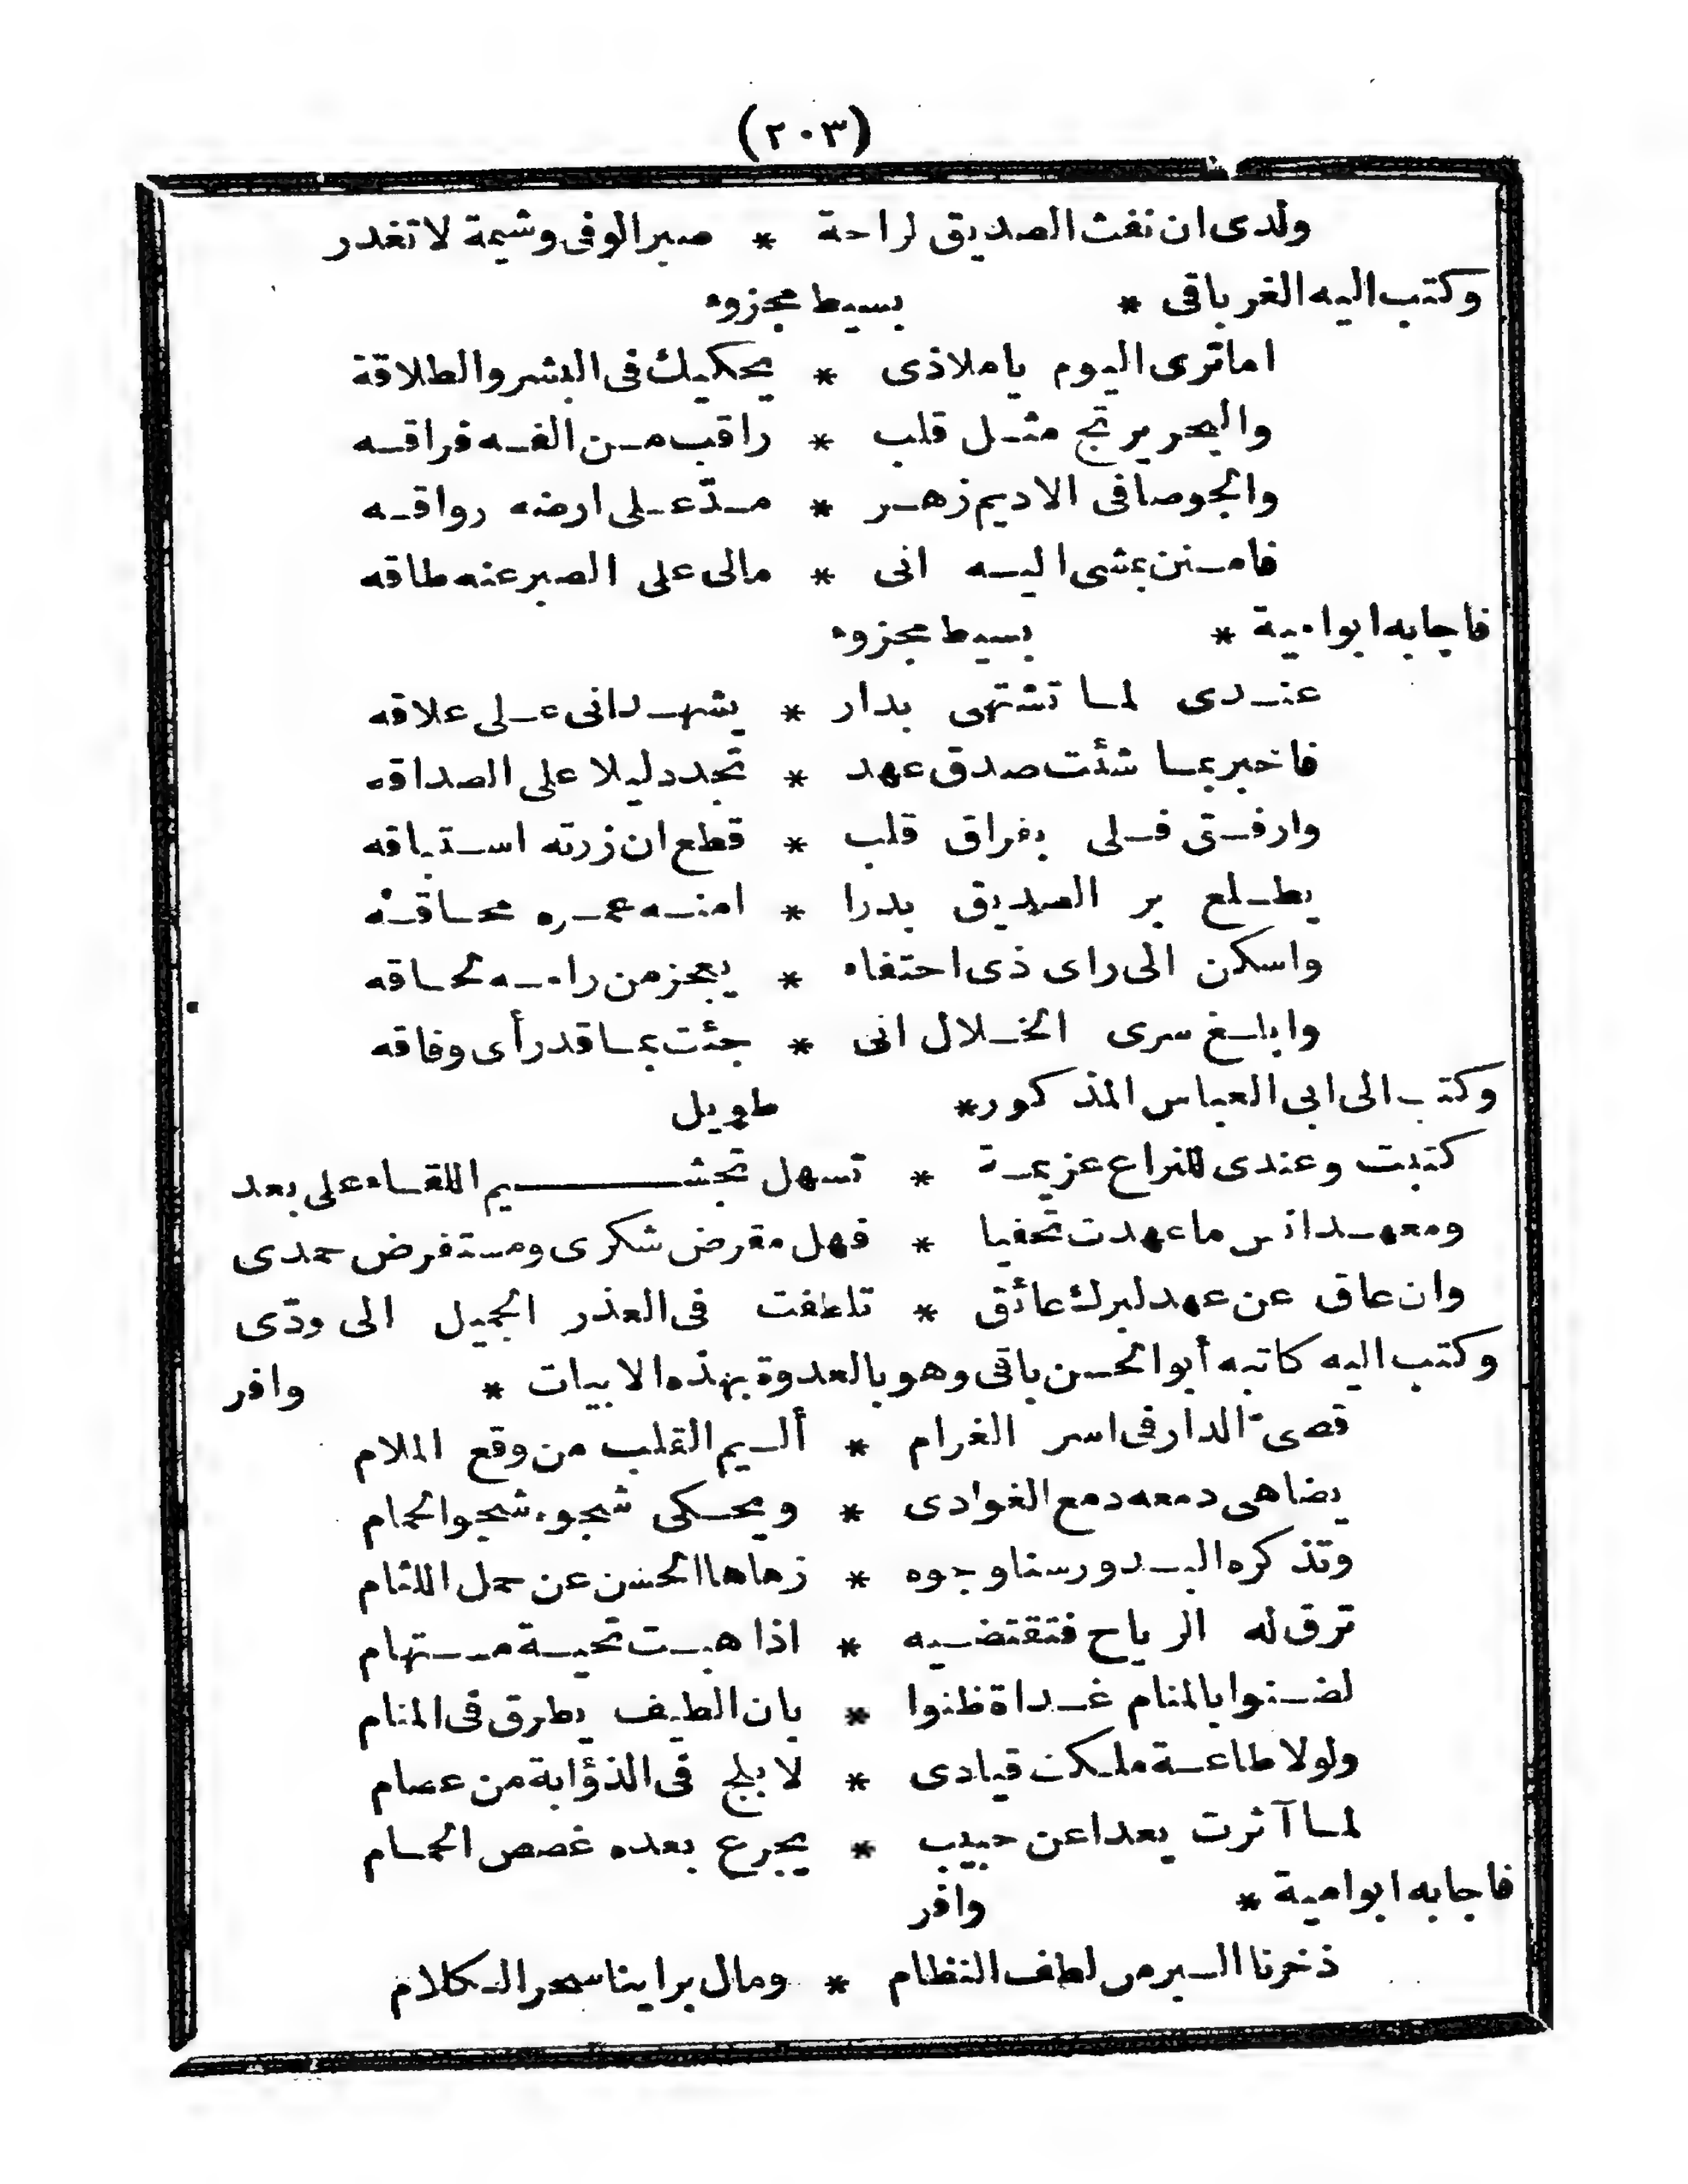 (٢٠٣)
ولدى ان نفث الصديق لراحة * صبر الوفى وشيمة لا تغدر
وكتب اليه الغرباقى * بسيط مجزوء
اما ترى اليوم يا ملاذى * يحكيك فى البشر والطلاقة
والبحر يرتج مثل قلب * راقب من الفه فراقه
والجو صافى الاديم زهر * مدّ على ارضه رواقه
فامنن بمشى اليه انى * مالى على الصبر عنه طاقه
فاجابه ابو امية * بسيط مجزوء
عندى لما تشتهى بدار * يشهد انى على علاقه
فاخبر بما شئت صدق عهد * تجد دليلا على الصداقه
وارفق فلى بفراق قلب * قطع ان زرته استباقه
يطلع بر الصديق بدرا * امنه عمره محاقه
واسكن الى راى ذى احتفاء * يعجز من رامه لحاقه
وابلغ سرى الخلال انى * جئت بما قد رأى وفاقه
وكتب الى ابى العباس المذكور * طويل
كتبت وعندى للنراع عزيمة * تسهل تجشيم اللقاء على بعد
ومعهد انس ما عهدت تحفيا * فهل مقرض شكرى ومستفرض حمدى
وان عاق عن عهد لبرك عائق * تلطفت فى العذر الجميل الى ودّى
وكتب اليه كاتبه أبو الحسن باقى وهو بالعدوة بهذه الابيات * وافر
قصىّ الدار فى اسر الغرام * أليم القلب من وقع الملام
يضاهى دمعه دمع الغوادى * ويحكى شجوه شجو الحمام
وتذكره البدور سنا وجوه * زهاها الحسن عن حمل اللثام
ترق له الرياح فتقتضيه * اذا هبت تحية مستهام
لضنوا بالمنام غداة ظنوا * بان الطيف يطرق فى المنام
ولولا طاعة ملكت قيادى * لا بلج فى الذؤابة من عصام
لما آثرت بعدا عن حبيب * يجرع بعده غصص الحمام
فاجابه ابو امية * وافر
ذخرنا البر من لطف النظام * ومال براينا سحر الكلام